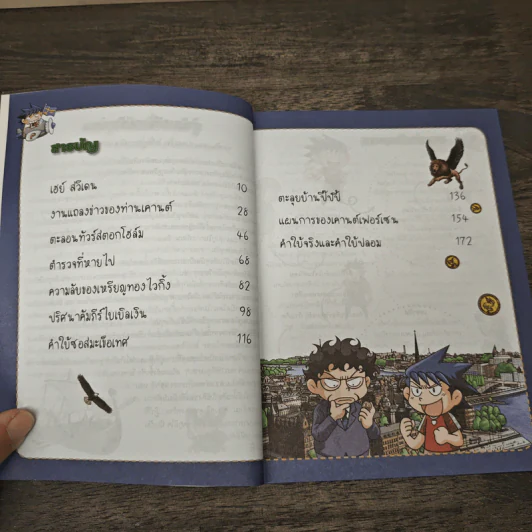 สารบัญ
เฮย์ สวีเดน 10
งานแถลงข่าวของท่านเคานต์ 28
ตะลอนทัวร์สตอกโฮล์ม 46
ตำรวจที่หายไป 68
ความลับของเหรียญทองไวกิ้ง 82
ปริศนาคัมภีร์ไบเบิลเงิน 98
คำใบ้ซอสมะเขือเทศ 116
ตะลุยบ้านปิ๊ปปี้ 136
แผนการของเคานต์เฟอร์เซน 154
คำใบ้จริงและคำใบ้ปลอม 172